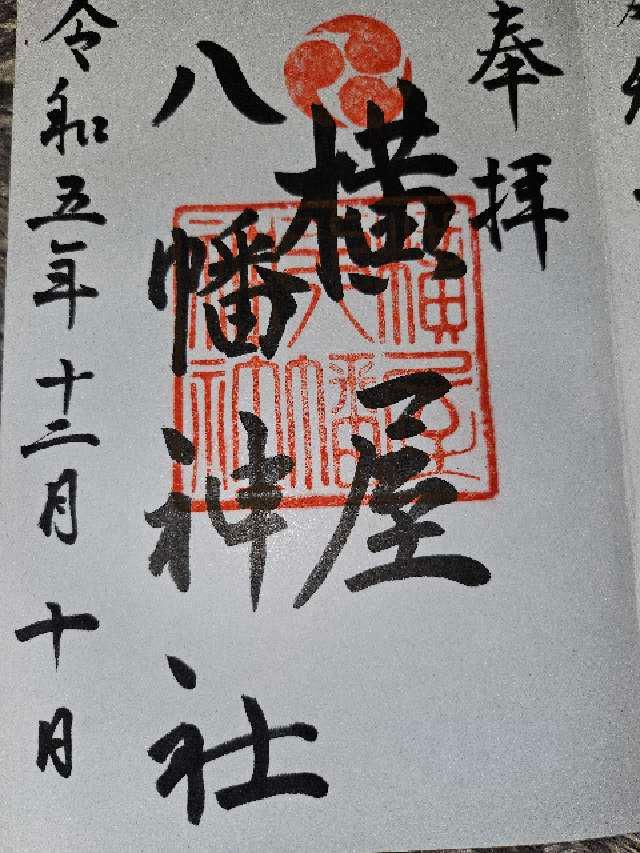 奉拝
横屋
八幡神社
令和五年十二月十日
横屋八幡神社